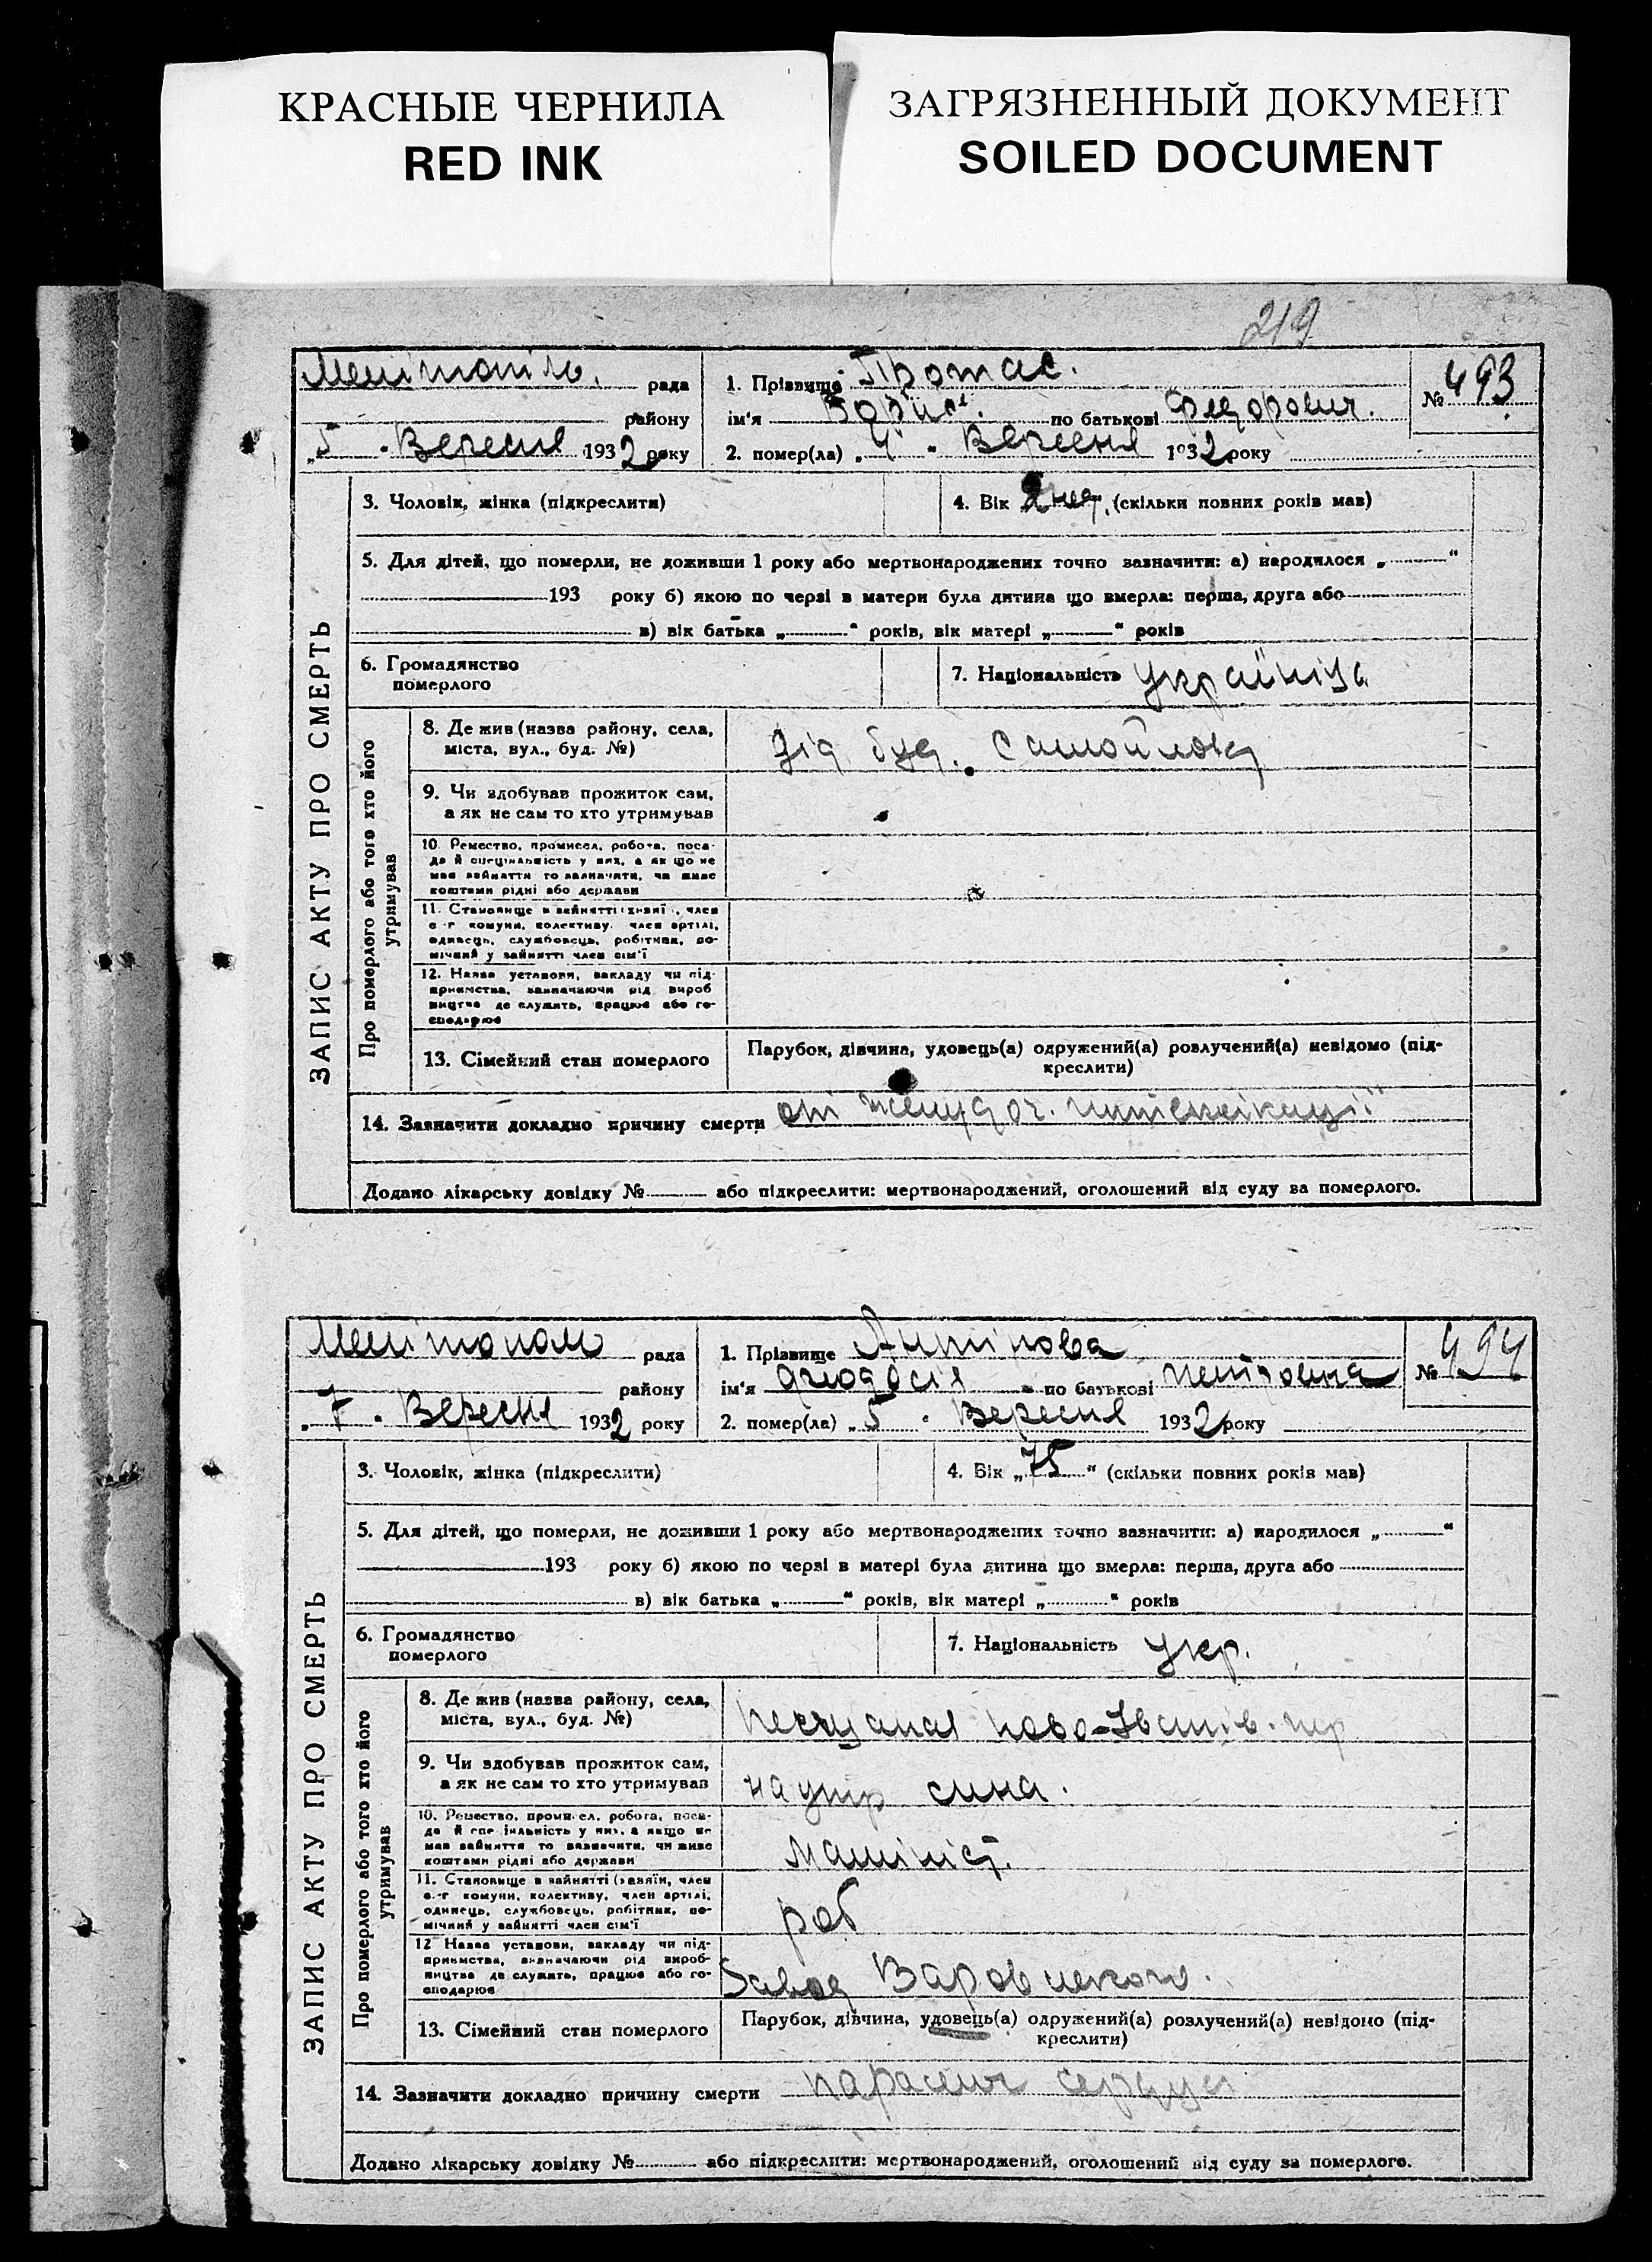 КРАСНЫЕ ЧЕРНИЛА
RED INK
ЗАГРЯЗНЕННЫЙ ДОКУМЕНТ
SOILED DOCUMENT
219
Мелітопіль. рада
1. Прізвище Протас.
№ 493
району
ім'я Борис. по батькові Федорович.
„5 " Вересня 1932 року
2. помер(ла) „4 " Вересня 1932 року
ЗАПИС АКТУ ПРО СМЕРТЬ
3. Чоловік, жінка (підкреслити)
4. Вік (скільки повних років мав)
5. Для дітей, що померли, не доживши 1 року або мертвонароджених точно зазначити: а) народилося „ “
193 року б) якою по черзі в матери була дитина що вмерла: перша, друга або
в) вік батька „ “ років, вік матері „ “ років
6. Громадянство
померлого
7. Національність Українець
Про померлого або того хто його
утримував
8. Де жив (назва району, села,
міста, вул., буд. №)
буд. Самойлова
9. Чи здобував прожиток сам,
а як не сам то хто утримував
10. Ремество, промисел, робота, поса-
да й спеціальність у них, а як що не
мав зайняття то зазначити, чи живе
коштами рідні або держави
11. Становище в зайнятті член
с.-г комуни, колективу, член артілі,
одинець, службовець, робітник, по-
мічний у зайнятті член сім'ї
12. Назва установи, закладу чи під-
приємства, зазначаючи рід вироб
ництва де служить, працює або го-
сподарює
13. Сімейний стан померлого
Парубок, дівчина, удовець(а) одружений(а) розлучений(а) невідомо (під-
креслити)
14. Зазначити докладно причину смерти
Додано лікарську довідку № або підкреслити: мертвонароджений, оголошений від суду за померлого.
рада
1. Прізвище Антіпова
№ 494
району
ім'я Феодосія по батькові Петровна
„7 " Вересня 1932 року
2. помер(ла) „5 " Вересня 1932 року
ЗАПИС АКТУ ПРО СМЕРТЬ
3. Чоловік, жінка (підкреслити)
4. Вік „75“ (скільки повних років мав)
5. Для дітей, що померли, не доживши 1 року або мертвонароджених точно зазначити: а) народилося „ “
193 року б) якою по черзі в матері була дитина що вмерла: перша, друга або
в) вік батька „ “ років, вік матері „ “ років
6. Громадянство
померлого
7. Національність Укр.
Про померлого або того хто його
утримував
8. Де жив (назва району, села,
міста, вул., буд. №)
Песчаная
9. Чи здобував прожиток сам,
а як не сам то хто утримував
на утр сина.
10. Ремество, промисел, робота, поса-
да й спеціальність у них, а якщо не
мав зайняття то зазначити, чи живе
коштами рідні або держави
машініст.
11. Становище в зайнятті (хазяїн, член
с.-г комуни, колективу, член артілі,
одинець, службовець, робітник, по-
мічний у зайнятті член сім'ї
роб
12 Назва установи, закладу чи під-
приємства, зазначаючи рід вироб-
ництва де служить, працює або го-
сподарює
Завод Варовшского.
13. Сімейний стан померлого
Парубок, дівчина, удовець(а) одружений(а) розлучений(а) невідомо (під-
креслити)
14. Зазначити докладно причину смерти параліч серця
Додано лікарську довідку № або підкреслити: мертвонароджений, оголошений від суду за померлого.